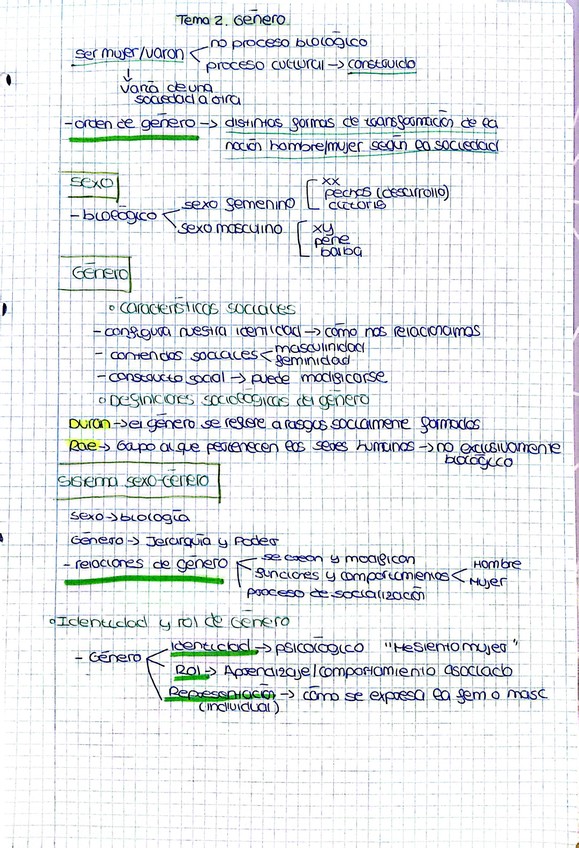 Tema 2. Género
ser mujer/varon < no proceso biológico
proceso cultural → construido
↓
varía de una
sociedad a otra
- orden de género → distintas formas de transformación de la
noción hombre/mujer según la sociedad
Sexo
- biológico < sexo femenino [ xx
pechos (desarrollo)
clitoris
sexo masculino [ xy
pene
barba
Género
◦ características sociales
- configura nuestra identidad → cómo nos relacionamos
- contenidos sociales < masculinidad
feminidad
- constructo social → puede modificarse
◦ Definiciones sociológicas del género
Duran → el género se refiere a rasgos socialmene formados
Rae → Grupo al que pertenecen los seres humanos → no exclusivamente
biológico
Sistema sexo-género
sexo → biología
Género → Jerarquía y Poder
- relaciones de género < se crean y modifican
funciones y comportamientos < Hombre
Mujer
proceso de socialización
◦ Identidad y rol de Género
- Género < Identidad → psicológico "Me siento mujer"
Rol → Aprendizaje/comportamiento asociado
Representación → cómo se expresa la fem o masc
(individual)